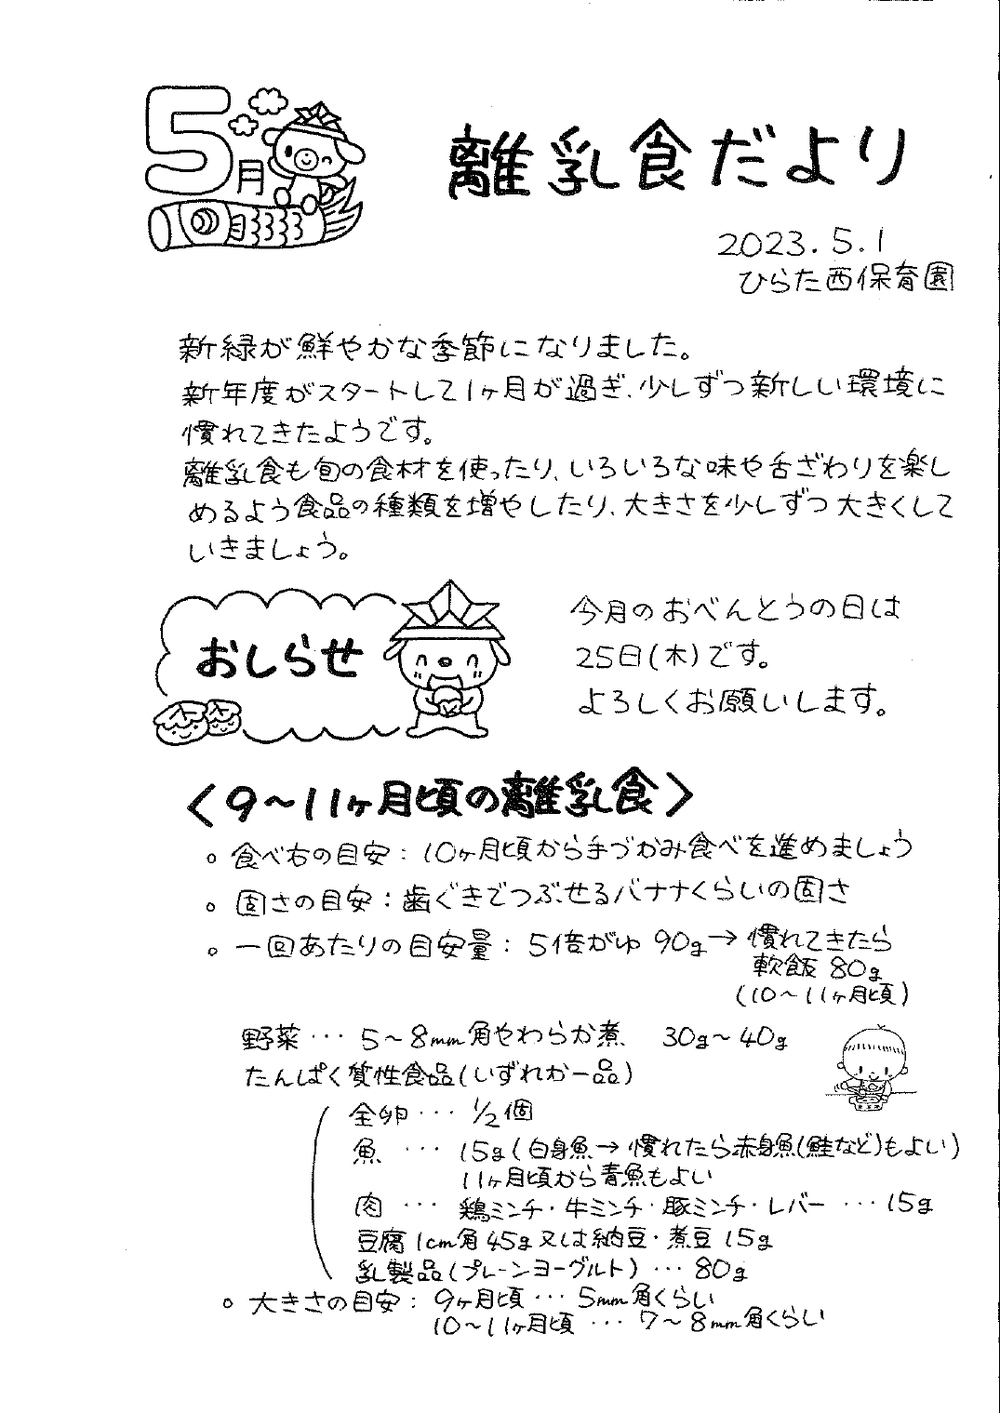 5月
離乳食だより
2023.5.1
ひらた西保育園
新緑が鮮やかな季節になりました。
新年度がスタートして1ヶ月が過ぎ、少しずつ新しい環境に
慣れてきたようです。
離乳食も旬の食材を使ったり、いろいろな味や舌ざわりを楽し
めるよう食品の種類を増やしたり、大きさを少しずつ大きくして
いきましょう。
おしらせ
今月のおべんとうの日は
25日(木)です。
よろしくお願いします。
〈9～11ヶ月頃の離乳食〉
。食べ方の目安：10ヶ月頃から手づかみ食べを進めましょう
。固さの目安：歯ぐきでつぶせるバナナくらいの固さ
。一回あたりの目安量：5倍がゆ 90g→ 慣れてきたら
軟飯 80g
(10～11ヶ月頃)
野菜 … 5～8mm角やわらか煮 30g～40g
たんぱく質性食品(いずれか一品)
全卵 … 1/2個
魚 … 15g(白身魚→慣れたら赤身魚(鮭など)もよい)
11ヶ月頃から青魚もよい
肉 … 鶏ミンチ・牛ミンチ・豚ミンチ・レバー … 15g
豆腐1cm角45g又は納豆・煮豆15g
乳製品(プレーンヨーグルト) … 80g
。大きさの目安：9ヶ月頃 … 5mm角くらい
10～11ヶ月頃 … 7～8mm角くらい